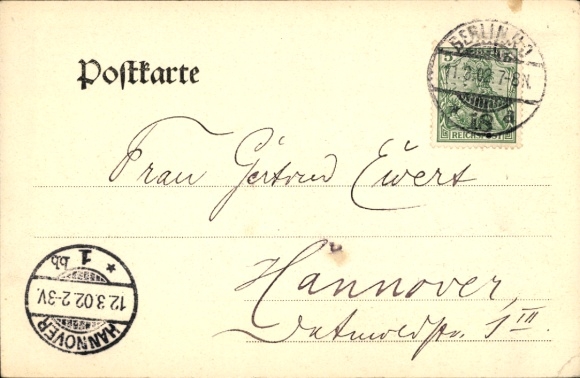 Postkarte
BERLIN
11.3.02. 7-8N.
REICHSPOST
Frau Gertrud Ewert
Hannover,
Detmoldstr. 1 III.
HANNOVER
12.3.02.2-3V.
* 1 bb